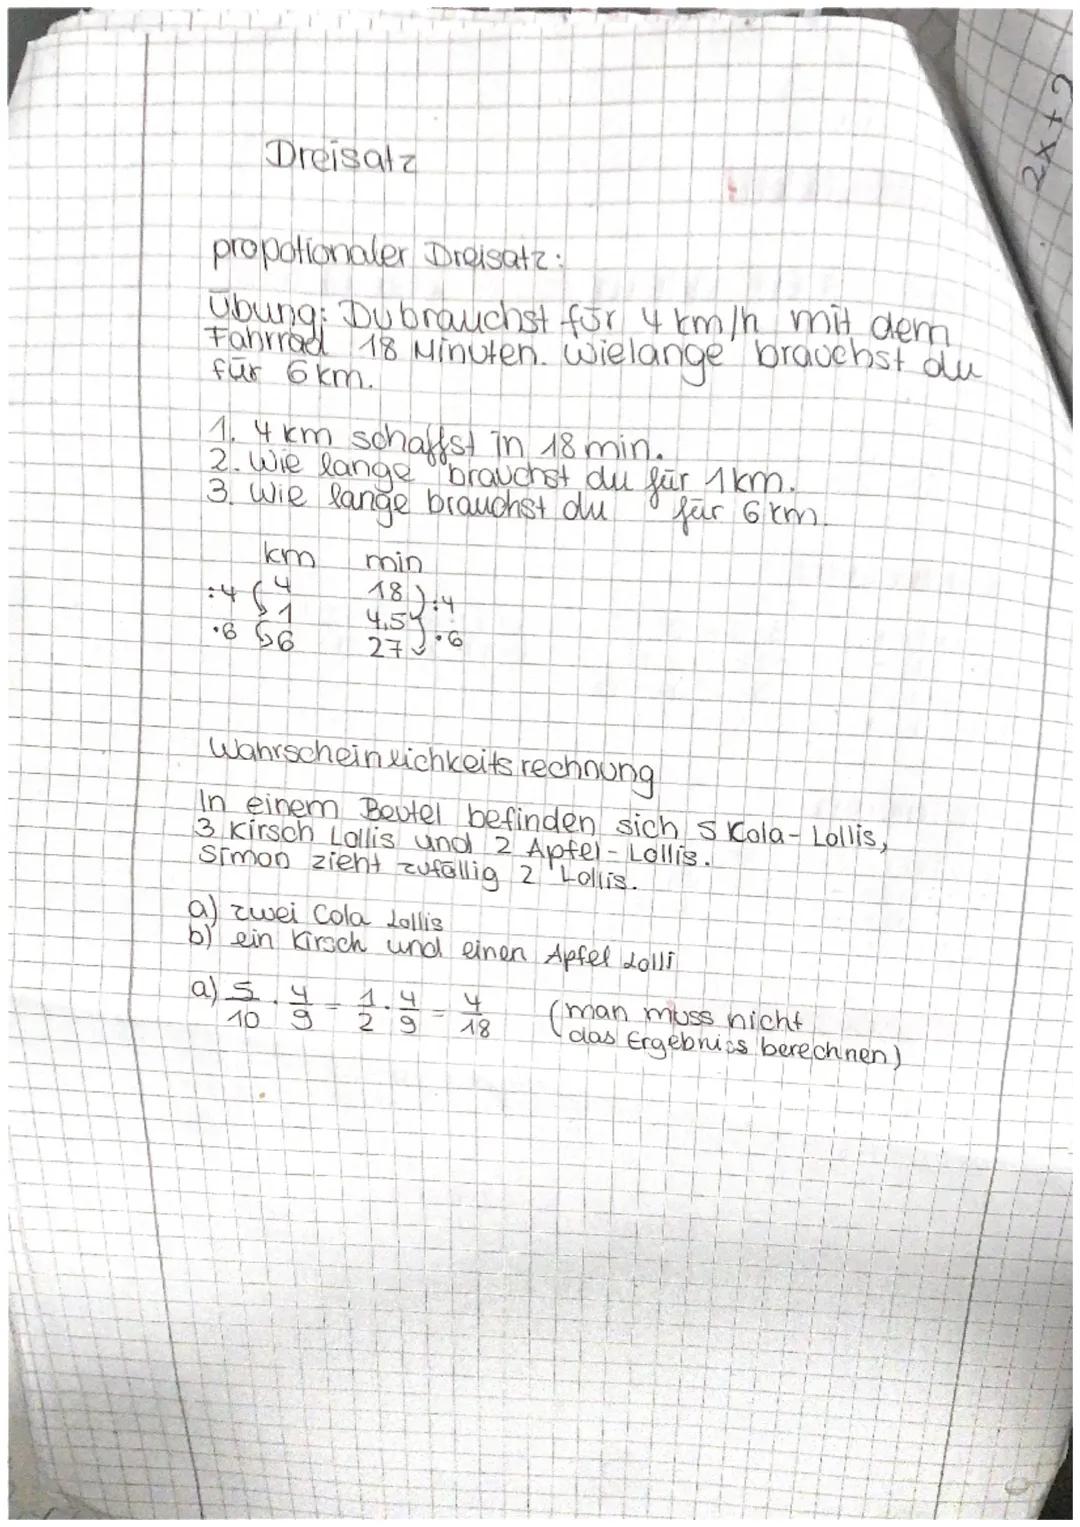 2x+2
Dreisatz
propotionaler Dreisatz:
Übung: Du brauchst für 4 km/h mit dem
Fahrrad 18 Minuten. Wielange brauchst du
für 6 km.
1. 4 km schaffst in 18 min.
2. Wie lange brauchst du für 1 km.
3. Wie lange brauchst du für 6 km.
km min
:4 4 18 :4
1 4,5
·6 6 27 ·6
Wahrscheinlichkeitsrechnung
In einem Beutel befinden sich 5 Kola-Lollis,
3 Kirsch Lollis und 2 Apfel-Lollis.
Simon zieht zufällig 2 Lollis.
a) zwei Cola Lollis
b) ein Kirsch und einen Apfel Lolli
a) 5/10 · 4/9 = 1/2 · 4/9 = 4/18 (man muss nicht
das Ergebniss berechnen)